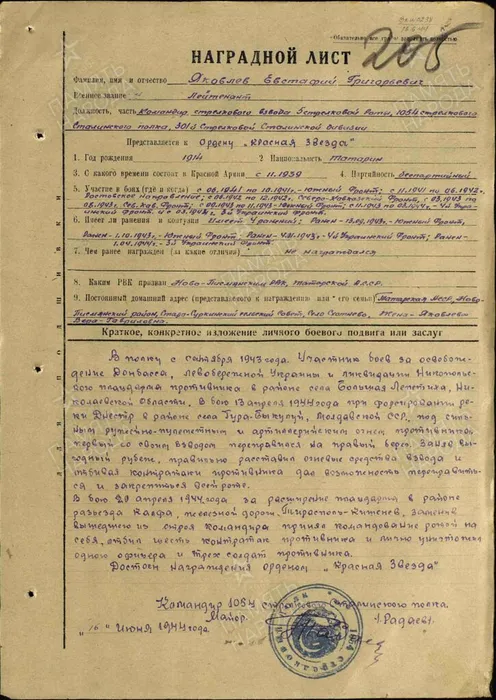 Обязательно все графы
205
НАГРАДНОЙ ЛИСТ
Фамилия, имя и отчество Яковлев Евстафий Григорьевич
Военное звание Лейтенант
Должность, часть Командир стрелкового взвода 5 стрелковой роты, 1054 стрелкового
Сталинского полка, 301й Стрелковой Сталинской дивизии
Представляется к Ордену „Красная Звезда"
1. Год рождения 1914 2. Национальность Татарин
3. С какого времени состоит в Красной Армии с 11.1939 4. Партийность беспартийный
5. Участие в боях (где и когда) с 06.1941 по 10.1941-Южный Фронт; с 11.1941 по 06.1942,
Ростовское Направление; с 06.1942 по 12.1942, Северо-Кавказский Фронт; с 03.1943 по
05.1943, Сев. Кав. Фронт; с 08.1943 по 11.1943-Южный Фронт; с 11.1943 по 03.1944,-4й Укра-
инский Фронт и с 03.1944 г., 3й Украинский Фронт.
6. Имеет ли ранения и контузии Имеет 4 ранения: Ранен-13.09.1943,-Южный Фронт,
Ранен-1.10.1943,-Южный Фронт. Ранен-4й Украинский Фронт; Ранен-
1.04.1944г.-3й Украинский Фронт.
7. Чем ранее награжден (за какие отличия) Не награждался
8. Каким РВК призван Ново-Письмянским РВК, Татарской АССР.
9. Постоянный домашний адрес (представляемого к награждению или его семьи) Татарская АССР, Ново-
Письмянский район, Старо-Суркинский сельский Совет, Село Жена-Яковлева
Вера Гавриловна.
Краткое, конкретное изложение личного боевого подвига или заслуг
В полку с сентября 1943 года. Участник боев за освобож-
дение Донбасса, левобережной Украины и ликвидации Никополь-
ского плацдарма противника в районе села Большая Лепетиха, Ни-
колаевской области. В бою 13 апреля 1944 года при форсировании
реки Днестр в районе села Гура-Быкулуй, Молдавской ССР, под силь-
ным ружейно-пулеметным и артиллерийским огнем противника
первый со своим взводом переправился на правый берег. Заняв вы-
годный рубеж, правильно расставил огневые средства взвода и
отбивая контратаки противника дал возможность переправить-
ся и закрепиться всей роте.
В бою 20 апреля 1944 года за расширение плацдарма в районе
разъезда Калфа, железной дороги Тирасполь-Кишенев, заменив
вышедшего из строя командира принял командование ротой на
себя, отбил шесть контратак противника и лично уничтожил
одного офицера и трех солдат противника.
Достоин награждения орденом „Красная Звезда"
Командир 1054 стрелкового Сталинского полка.
Майор /Радаев/.
„16" Июня 1944 года